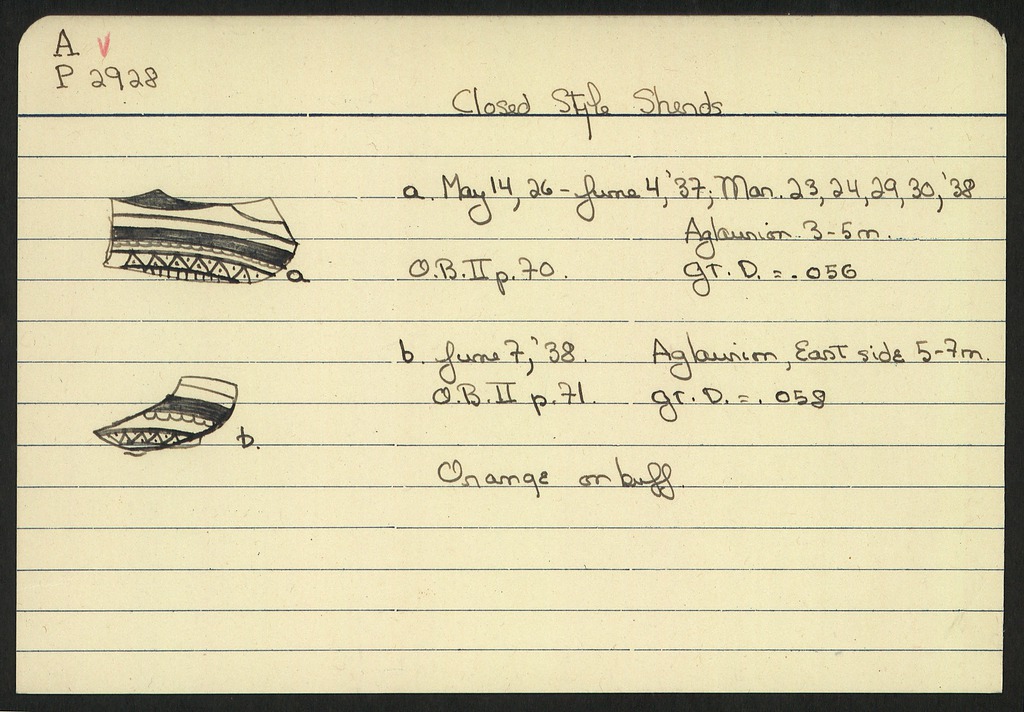 A V
P 2928
Closed Style Sherds
a. May 14, 26 - June 4, '37; Mar. 23, 24, 29, 30, '38
Aglaurion 3-5 m.
O.B. II p. 70. gr. D. = .056
a
b. June 7, '38. Aglaurion, East side 5-7 m.
O.B. II p. 71. gr. D. = .058
b.
Orange on buff.